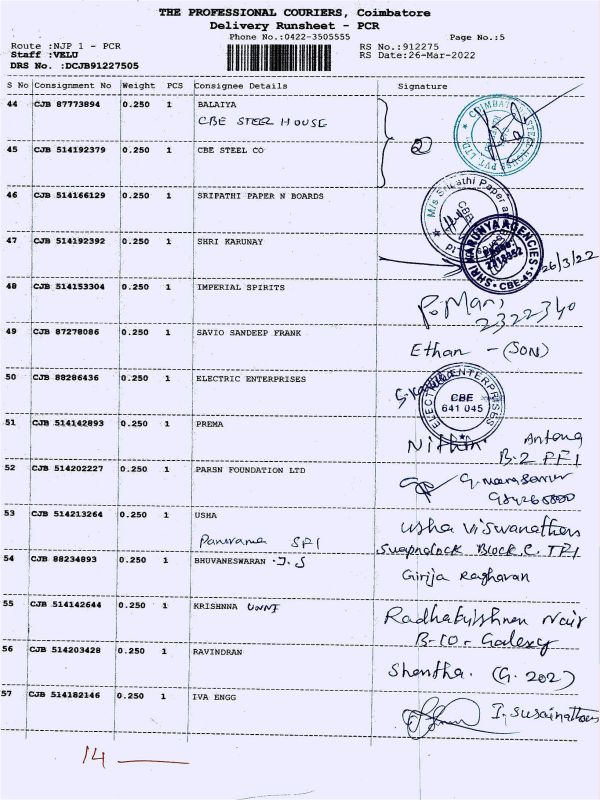 THE PROFESSIONAL COURIERS, Coimbatore
Delivery Runsheet - PCR
Phone No.:0422-3505555 Page No.:5
Route :NJP 1 - PCR RS No.:912275
Staff :VELU RS Date:26-Mar-2022
DRS No. :DCJB91227505
S No Consignment No Weight PCS Consignee Details Signature
44 CJB 87773894 0.250 1 BALAIYA
CBE STEEL HOUSE
2
45 CJB 514192379 0.250 1 CBE STEEL CO
46 CJB 514166129 0.250 1 SRIPATHI PAPER N BOARDS
M/s Sripathi Paper
47 CJB 514192392 0.250 1 SHRI KARUNAY
SHRI KARUNYA AGENCIES
CBE-45
26/3/22
48 CJB 514153304 0.250 1 IMPERIAL SPIRITS
P. Mari
2322340
49 CJB 87278086 0.250 1 SAVIO SANDEEP FRANK
Ethan - (SON)
50 CJB 88286436 0.250 1 ELECTRIC ENTERPRISES
ELECTRIC ENTERPRISES
CBE
641 045
51 CJB 514142893 0.250 1 PREMA
Nithin
B-2 PF1
52 CJB 514202227 0.250 1 PARSN FOUNDATION LTD
53 CJB 514213264 0.250 1 USHA
Usha Viswanathan
Panorama SP1
Block C. TP1
54 CJB 88234893 0.250 1 BHUVANESWARAN .J.S
Girija Raghavan
55 CJB 514142644 0.250 1 KRISHNNA UNNI
Radhakrishnan Nair
B-10- Galaxy
56 CJB 514203428 0.250 1 RAVINDRAN
Shantha. (G. 202)
57 CJB 514182146 0.250 1 IVA ENGG
I. Susainathan
14